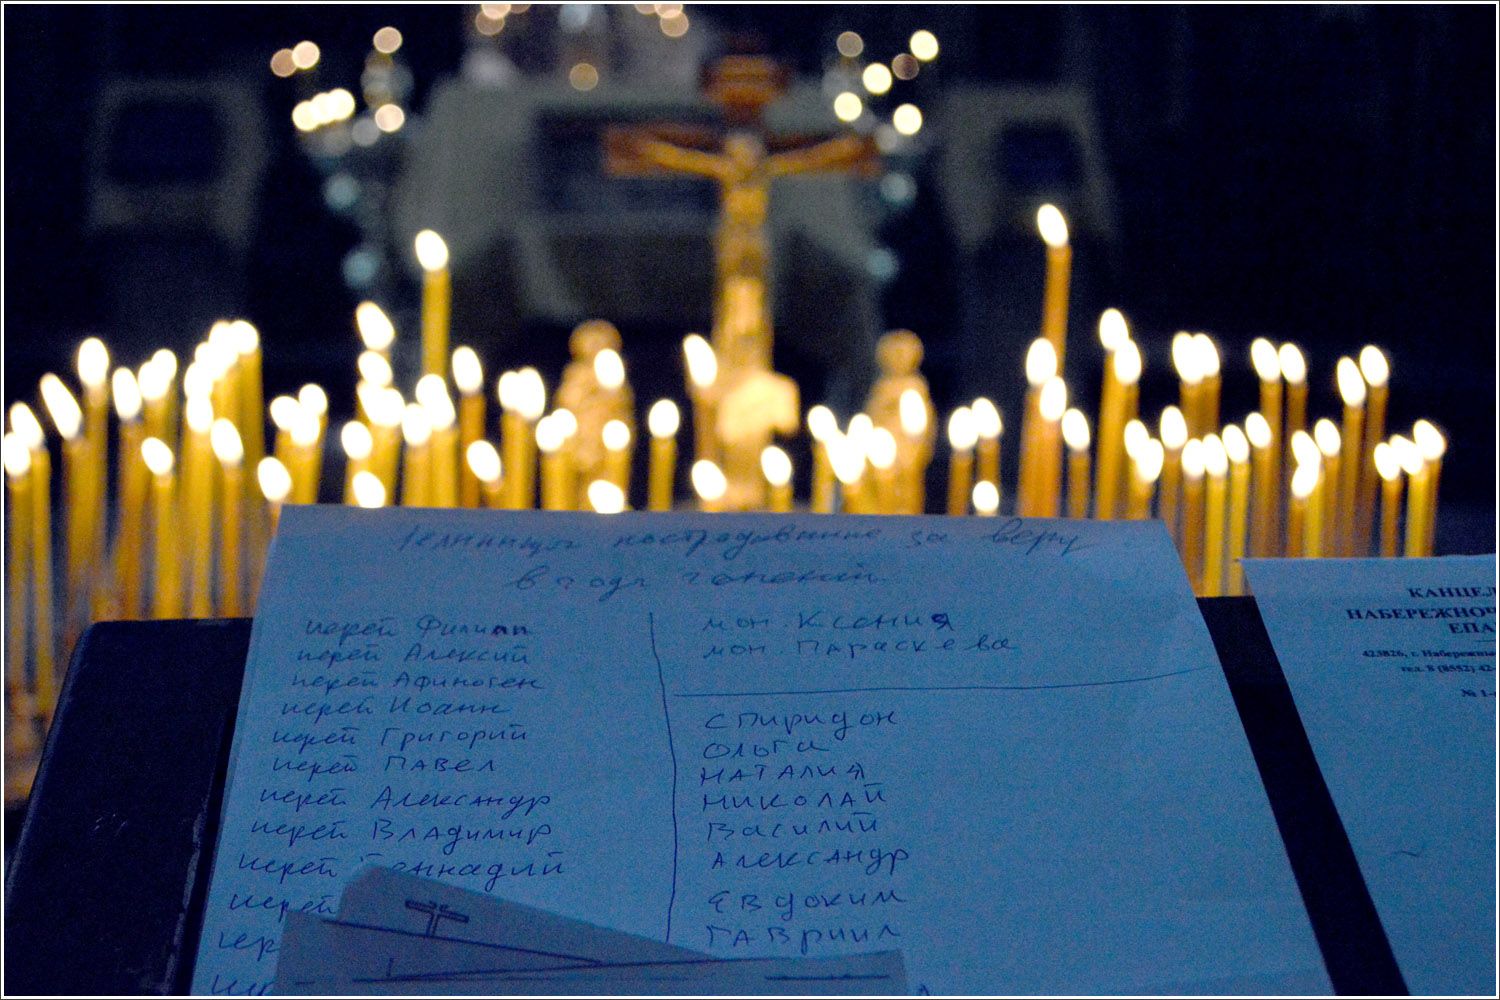 Челнинцы пострадавшие за веру
в годы гонений.
иерей Филипп
иерей Алексий
иерей Афиноген
иерей Иоанн
иерей Григорий
иерей Павел
иерей Александр
иерей Владимир
иерей Геннадий
иерей
мон Ксения
мон Параскева
Спиридон
Ольга
Наталия
Николай
Василий
Александр
Евдоким
Гавриил
КАНЦЕЛ
НАБЕРЕЖНОЧ
ЕПА
423826, г. Набережны
тел. 8 (8552) 42-
№ 1-